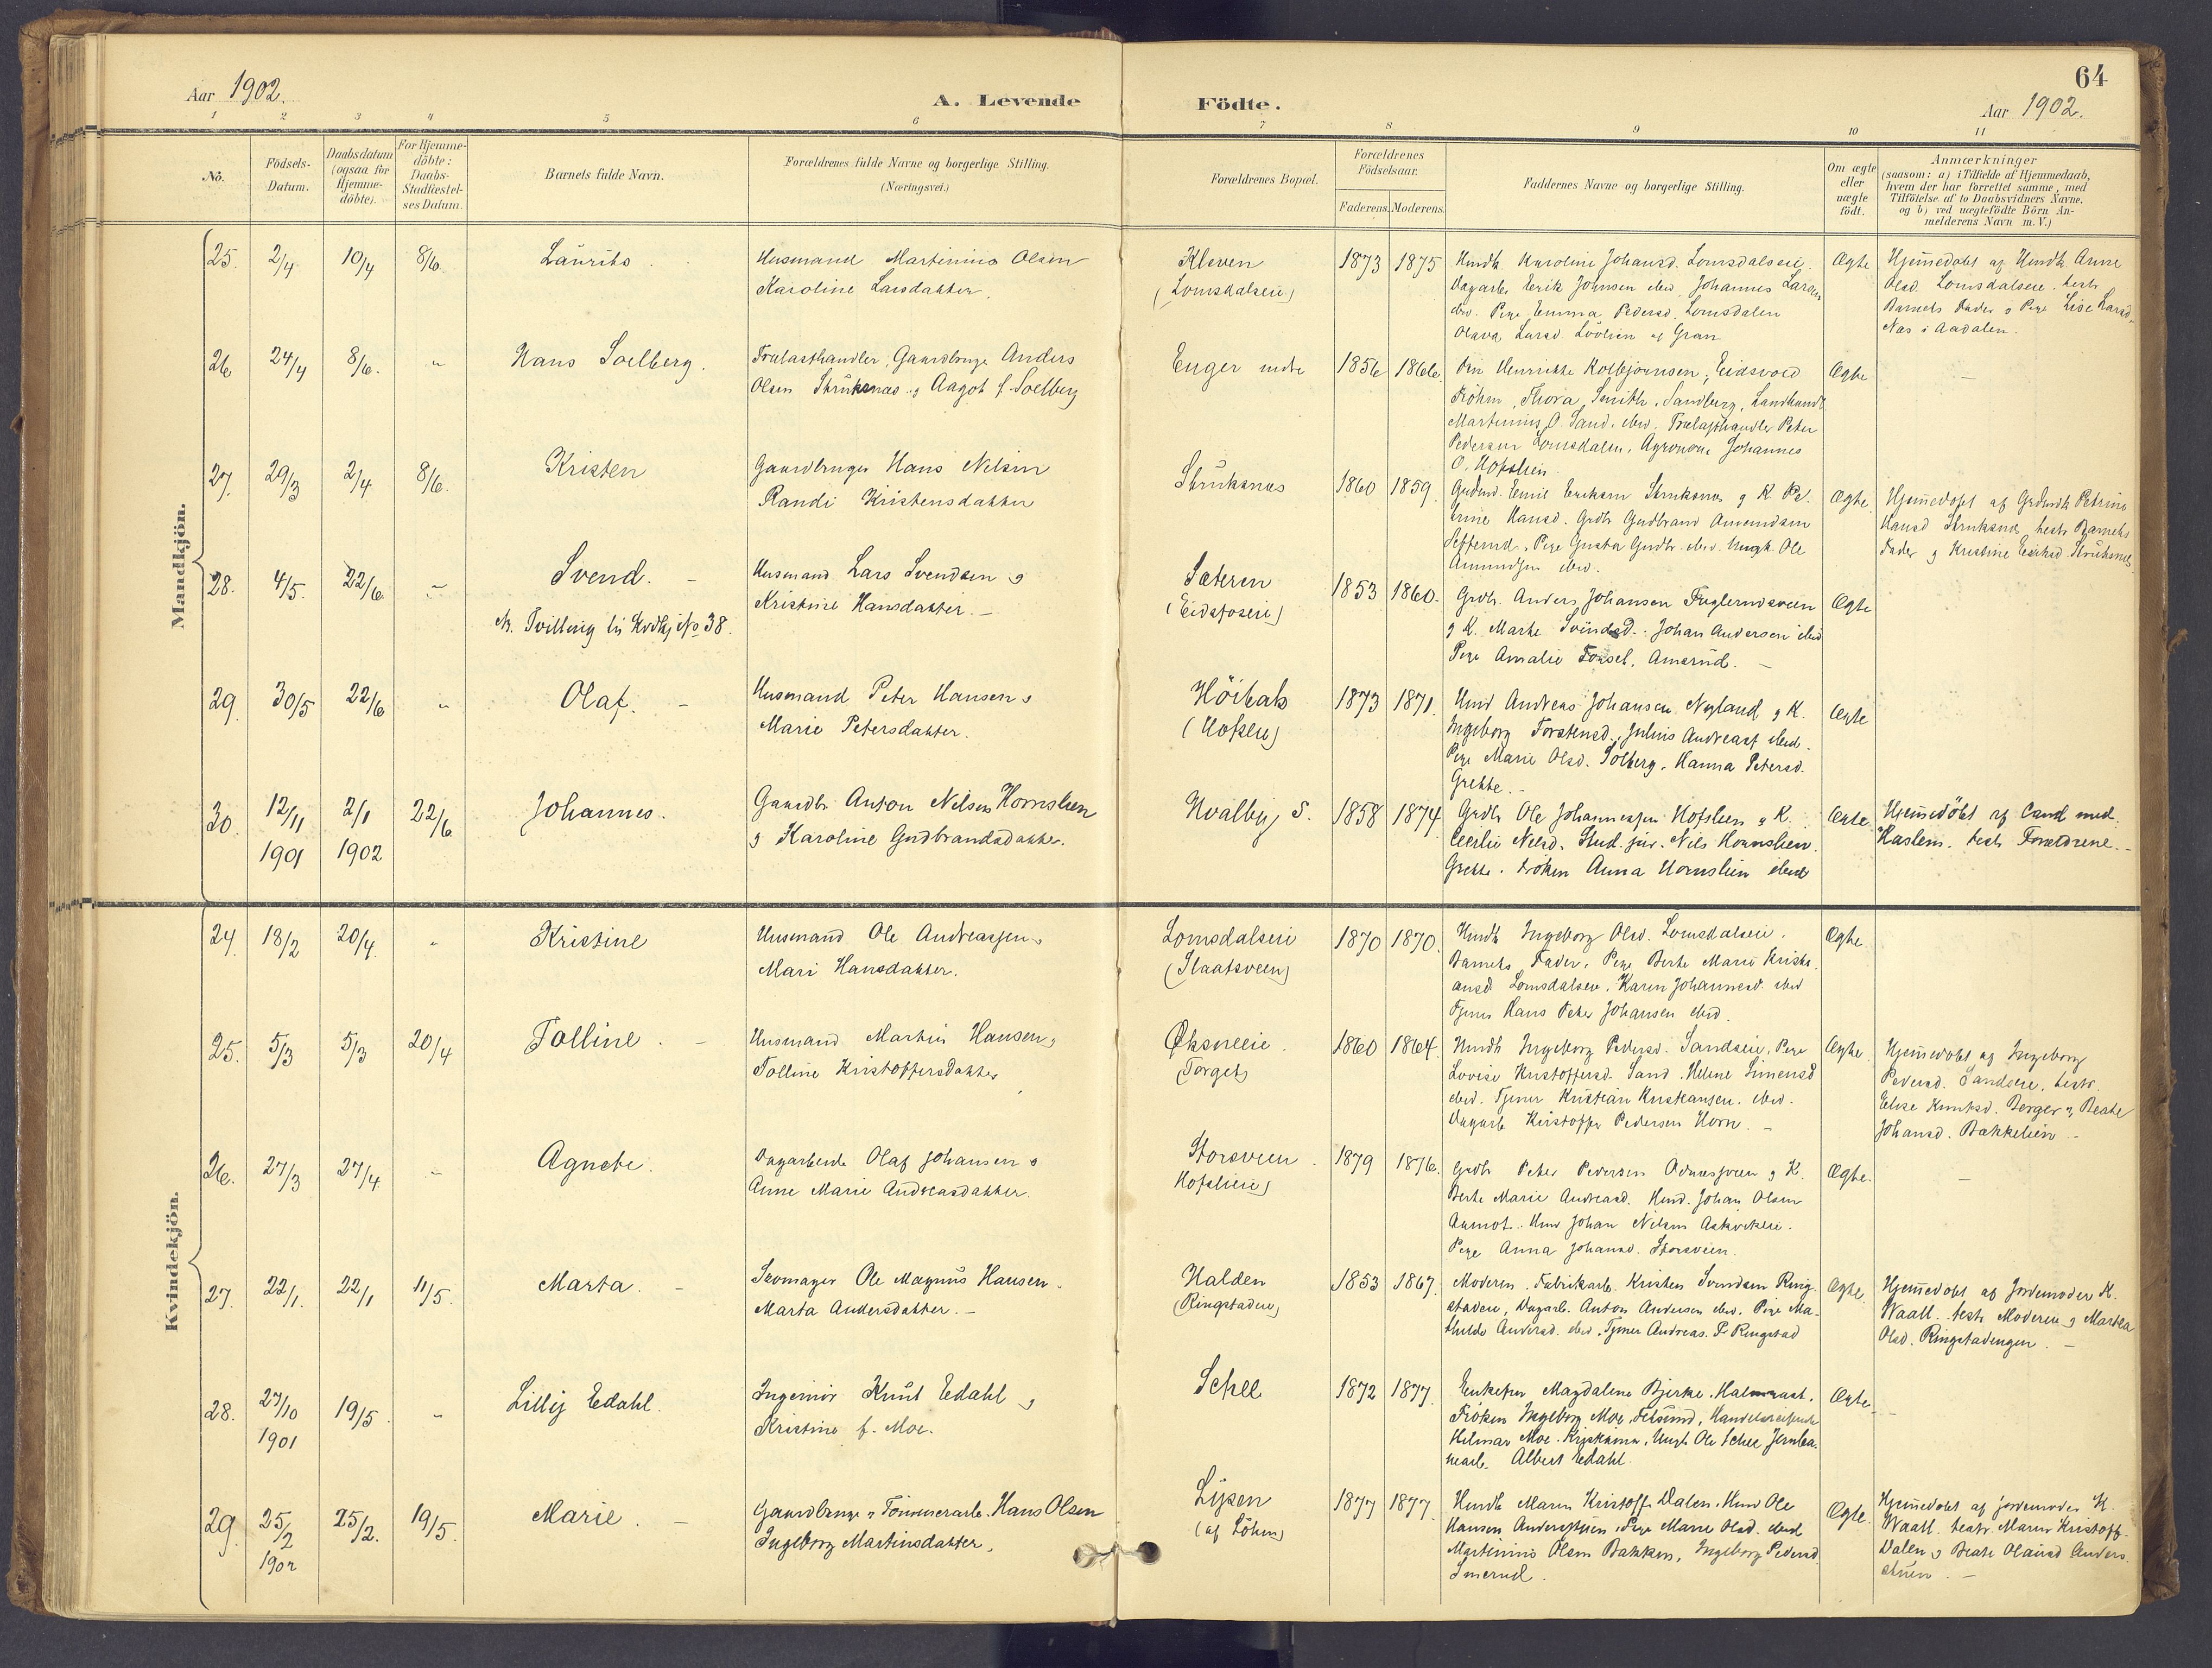 64
Aar 1902.
A. Levende Födte.
Aar 1902.
1 2 3 4 5 6 7 8 9 10 11
No.
Födsels-
Datum.
Daabsdatum
(ogsaa for
Hjemme-
döbte).
For Hjemme-
döbte:
Daabs-
Stadfæstel-
ses Datum.
Barnets fulde Navn.
Forældrenes fulde Navne og borgerlige Stilling.
(Næringsvei.)
Forældrenes Bopæl.
Forældrenes
Födselsaar.
Faderens. Moderens.
Faddernes Navne og borgerlige Stilling.
Om ægte
eller
uægte
födt.
Anmærkninger
(saasom: a) i Tilfælde af Hjemmedaab,
hvem der har forrettet samme, med
Tilföielse af to Daabsvidners Navne,
og b) ved uægtefödte Börn An-
melderens Navn m. V.)
Mandkjön.
25. 2/4 10/4 8/6 Laurits
Husmand Martinius Olsen
Karoline Larsdatter.
Kleven
(Lomsdalseie)
1873 1875
Hmdk. Karoline Johansd. Lomsdalseie.
Dagarb. Erik Johnsen ibid. Johannes Larsen
ibid. Pige Emma Pedersd. Lomsdalen
Olava Larsd. Lövlien af Gran
Ægte
Hjemmedöbt af Hmdk. Anne
Olsd. Lomsdalseie. test.
Barnets Fader o Pige Lise Larsd.
Næs i Aadalen.
26 24/4 8/6. " Hans Soelberg.
Trælasthandler, Gaardbruger Anders
Olsen Struksnæs og Aagot f. Soelberg
Enger nedre
1856 1866.
Henrikke Kolbjörnsen, Eidsvold
Fröken Thora Smith, Sandberg, Landhandl.
Martinius O. Sand. ibid. Trælasthandler Peter
Pedersen Lomsdalen, Agronom Johannes
O. Hofslien.
Ægte
–
27. 29/3 2/4 8/6. Kristen
Gaardbruger Hans Nilsen
Randi Kristensdatter
Struksnæs
1860 1859.
Grdmd. Emil Eriksen Struksnæs og K. Pe-
trine Hansd. Grdbr. Gudbrand Amundsen
Pige Gusta Gudbr. ibid. Ungk. Ole
Amundsen ibid.
Ægte.
Hjemmedöbt af Grdmdk. Petrine
Hansd. Struksnæs, test. Barnets
Fader og Kristine Eriksd. Struksnæs.
28. 4/5. 22/6. " Svend. –
Nb. Tvilling til Kvdkj. No 38.
Husmand Lars Svendsen og
Kristine Hansdatter. –
Sæteren
(Eidsfoseie)
1853 1860.
Grdbr. Anders Johansen Fuglerudsveen
og K. Marte Svendsd. Johan Andersen ibid
Pige Amalie Amsrud. –
Ægte
29. 30/5 22/6 " Olaf. –
Husmand Peter Hansen og
Marie Petersdatter.
Höibak
(Hofseie)
1873 1871.
Hmd Andreas Johansen Nyland og K.
Ingeborg Torstensd. Julius Andreasf. ibid.
Pige Marie Olsd. Solberg. Hanna Petersd.
Grette. –
Ægte
30. 12/11 2/1 22/6 Johannes.
1901 1902
Gaardbr. Anton Nilsen Hornslien
og Karoline Gudbrandsdatter.
Hvalby S.
1858 1874.
Grdb. Ole Johannessen Hofslien og K.
Cecilie Nilsd. Stud. jur. Nils Hornslien.
Grette. Fröken Anna Hornslien ibid
Ægte.
Hjemmedöbt af Cand. med.
Haslem. test. Forældrene. –
Kvindekjön.
24. 18/2 20/4. " Kristine
Husmand Ole Andreassen og
Mari Hansdatter.
Lomsdalseie
(Slaatsveen)
1870 1870.
Hmdk Ingeborg Olsd. Lomsdalseie.
Barnets Fader, Pige Berte Marie Kristi-
ansd. Lomsdalseie. Karen Johannesd. ibid
Tjener Hans Peter Johansen ibid.
Ægte
25. 5/3 5/3 20/4 Tolline. –
Husmand Martin Hansen og
Tolline Kristoffersdatter
Øksneeie.
(Torget)
1860 1864.
Hmdk Ingeborg Pedersd. Sandseie, Pige
Lovise Kristoffersd. Sand. Helene Simensd.
ibid. Tjener Kristian Kristiansen. ibid.
Dagarb Kristoffer Pedersen Horn. –
Ægte.
Hjemmedöbt af Ingeborg
Pedersd. Sandseie, test.
Elise Knutsd. Berger og Beate
Johansd. Bakkelien –
26. 27/3 27/4. " Agnete.
Dagarbeider Olaf Johansen og
Anne Marie Andreasdatter.
Storsveen.
Hofslieie)
1879 1876.
Grdbr Peter Pedersen og K.
Berte Marie Andreasd. Hmd. Johan Olsen
Aamot. Hmd Johan Nilsen
Pige Anna Johansd. Storsveen.
Ægte.
–
27. 22/1. 22/1 11/5. Marta. –
Skomager Ole Magnus Hansen.
Marta Andersdatter. –
Halden
(Ringstadeie)
1853 1867.
Moderen. Fabrikarb. Kristen Svendsen Ring-
stadeie, Dagarb. Anton Andersen ibid. Pige Ma-
thilde Andersd. ibid. Tjener Andreas. P. Ringstad
Ægte
Hjemmedöbt af Jordemoder K.
Waall. test. Moderen og Martea
Olsd. Ringstadengen. –
28. 27/10 19/5. " Lilly Edahl.
1901
Ingeniör Knut Edahl og
Kristine f. Moe.
Schee
1872 1877.
Enkefru Magdalene Bjerke.
Fröken Ingeborg Moe, Fetsund, Handelsreisende
Hilmar Moe. Kristiania, Ungk. Ole Schee Jernba-
nearb. Albert Edahl.
Ægte.
29. 25/2 25/2. 19/5. Marie. –
1902
Gaardbruger og Tömmerarb. Hans Olsen
Ingeborg Martinsdatter.
Lysen
(af Söhol)
1877 1877.
Hmdk. Maren Kristoff. Dalen. Hmd Ole
Hansen Andersstuen. Pige Marie Olsd. ibid
Martinius Olsen Bakken, Ingeborg Pedersd.
Smerud.
Ægte.
Hjemmedöbt af Jordemoder K.
Waall. test. Maren Kristoff.
Dalen og Beate Olausd Anders-
stuen. –